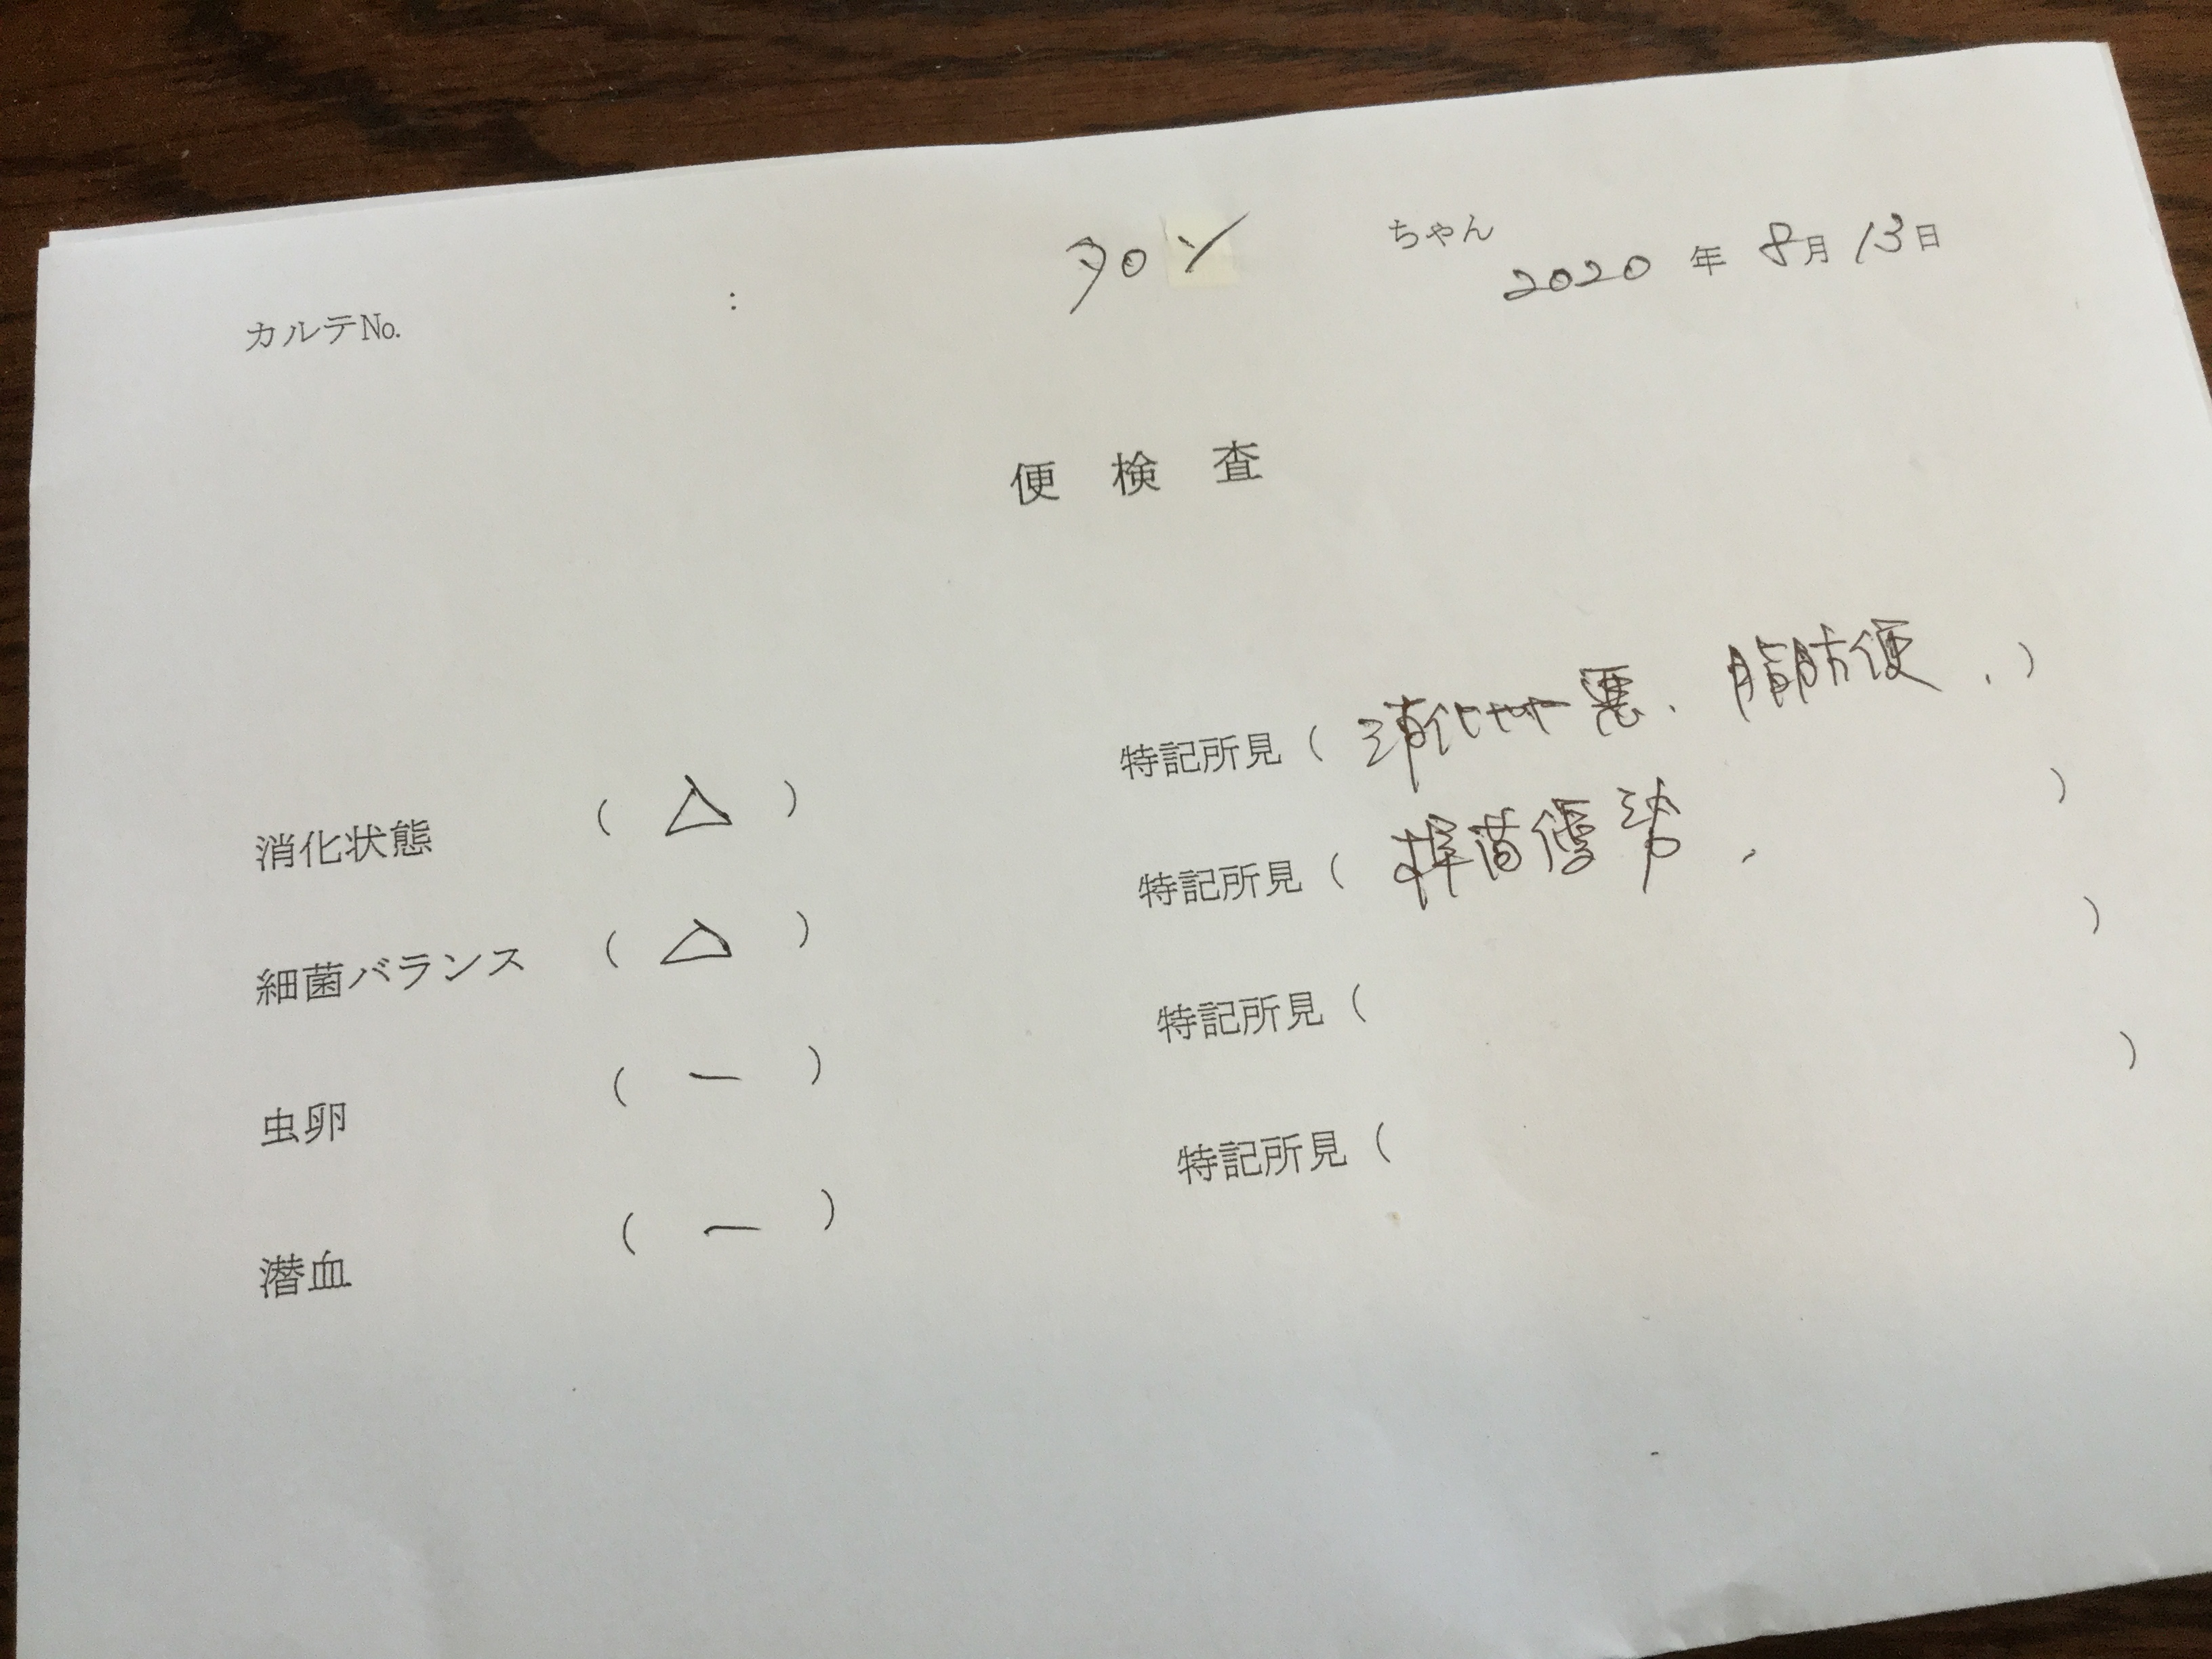 タロン ちゃん 2020 年 8月 13日
カルテNo. :
便 検 査
消化状態 ( △ ) 特記所見 ( 消化やや悪、脂肪便、)
細菌バランス ( △ ) 特記所見 ( 桿菌優勢、 )
虫卵 ( ー ) 特記所見 ( )
潜血 ( ー ) 特記所見 ( )